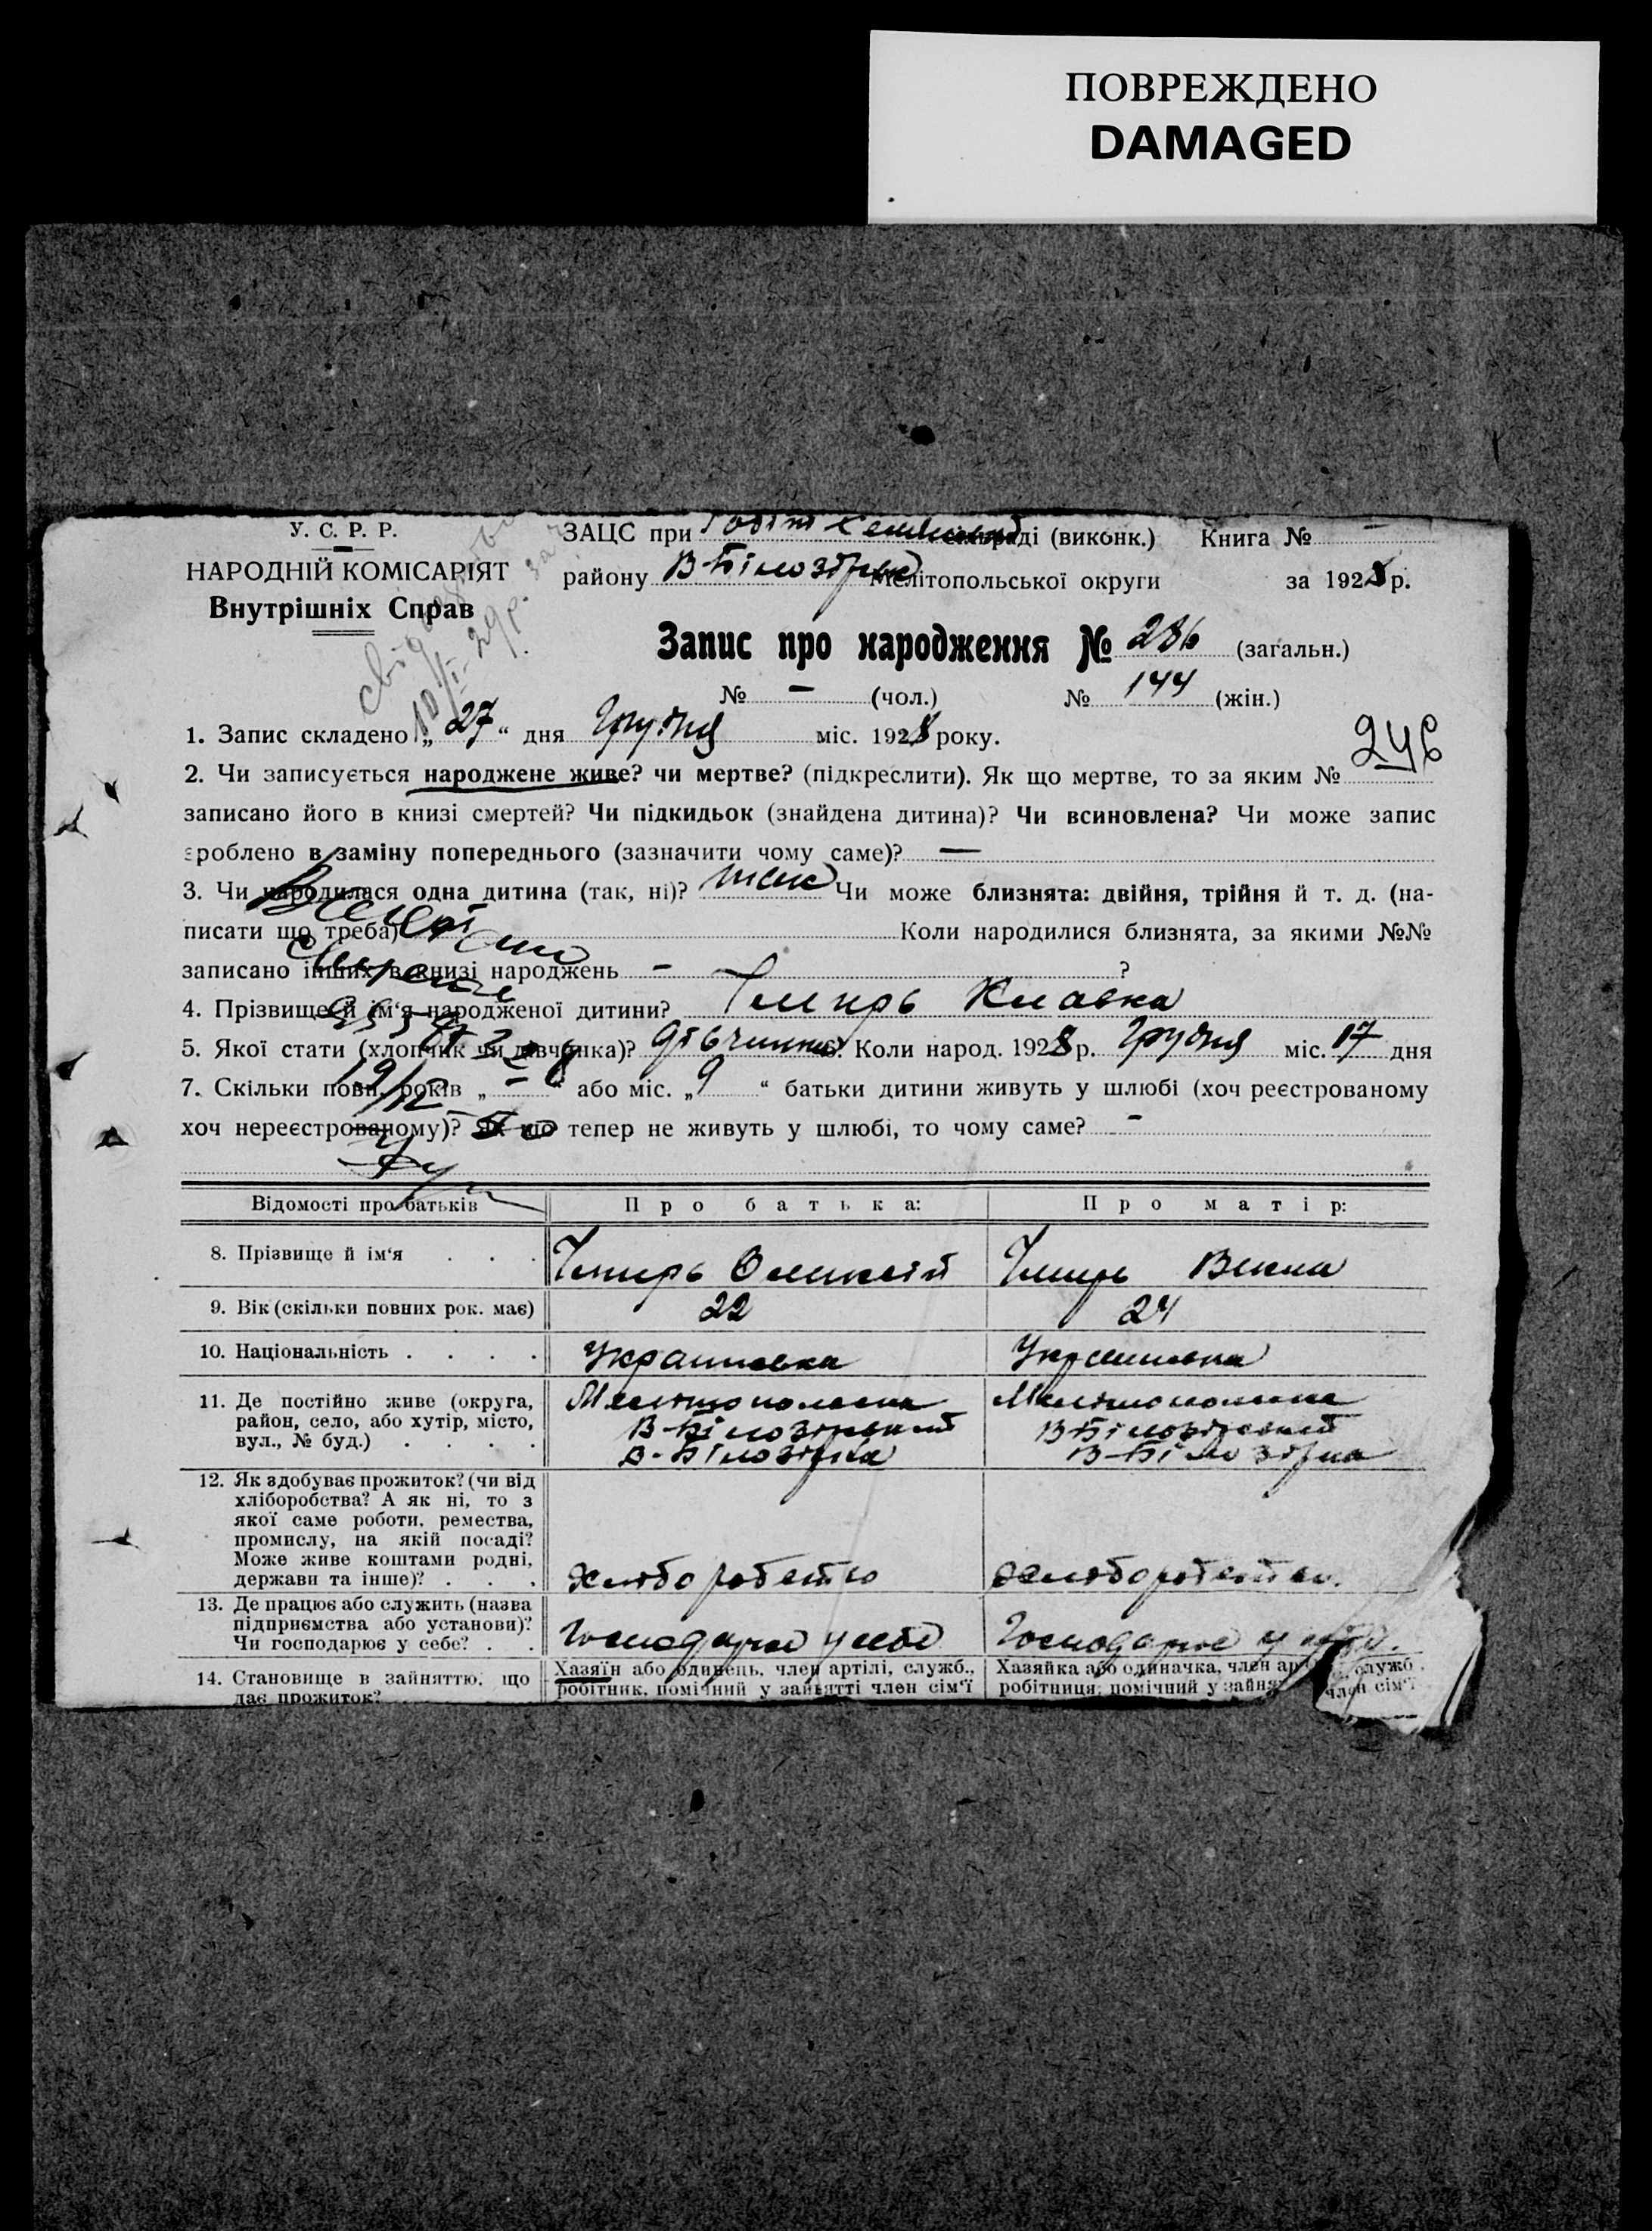 ПОВРЕЖДЕНО
DAMAGED
У. С. Р. Р.
НАРОДНІЙ КОМІСАРІЯТ
Внутрішніх Справ
ЗАЦС при раді (виконк.) Книга № –
району В-Білозірськ Мелітопольської округи за 1928 р.
Запис про народження № 286 (загальн.)
№ – (чол.) № 144 (жін.)
1. Запис складено „27“ дня Грудня міс. 1928 року.
246
2. Чи записується народжене живе? чи мертве? (підкреслити). Як що мертве, то за яким №
записано його в книзі смертей? Чи підкидьок (знайдена дитина)? Чи всиновлена? Чи може запис
зроблено в заміну попереднього (зазначити чому саме)? —
3. Чи народилася одна дитина (так, ні)? так Чи може близнята: двійня, трійня й т. д. (на-
писати що треба) Коли народилися близнята, за якими №№
записано інших в книзі народжень – ?
4. Прізвище й ім‘я народженої дитини? Клавка
5. Якої стати (хлопчик чи дівчинка)? дівчинка 6. Коли народ. 1928 р. Грудня міс. 17 дня
7. Скільки повн. років „ – “ або міс. „ 9 “ батьки дитини живуть у шлюбі (хоч реєстрованому
хоч нереєстрованому)? Як що тепер не живуть у шлюбі, то чому саме? –
Відомості про батьків Про батька: Про матір:
8. Прізвище й ім‘я . . . Олексій
9. Вік (скільки повних рок. має) 22 24
10. Національність . . . . Українська Українська
11. Де постійно живе (округа, Мелітопольська Мелітопольська
район, село, або хутір, місто, В-Білозірський В-Білозірський
вул., № буд.) . . . . В-Білозірка В-Білозірка
12. Як здобуває прожиток? (чи від
хліборобства? А як ні, то з
якої саме роботи, ремества,
промислу, на якій посаді?
Може живе коштами родні,
держави та інше)? . . . Хліборобство Хліборобство
13. Де працює або служить (назва
підприємства або установи)?
Чи господарює у себе? . . Господарює у себе Господарює у себе.
14. Становище в зайняттю, що Хазяїн або одинець, член артілі, служб., Хазяйка або одиначка, член служб.
дає прожиток? робітник, помічний у зайнятті член сім‘ї робітниця, помічний у член сім‘ї